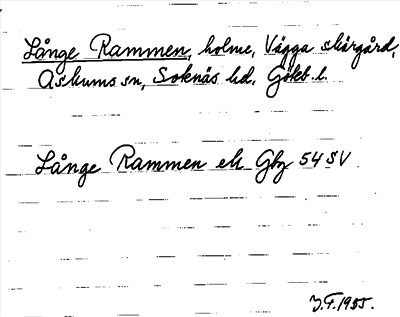 Långe Rammen, holme, Vägga skärgård,
Askums sn, Sotenäs hd, Göteb. l.
Långe Rammen ek Gbg 54 SV
J.F. 1955.